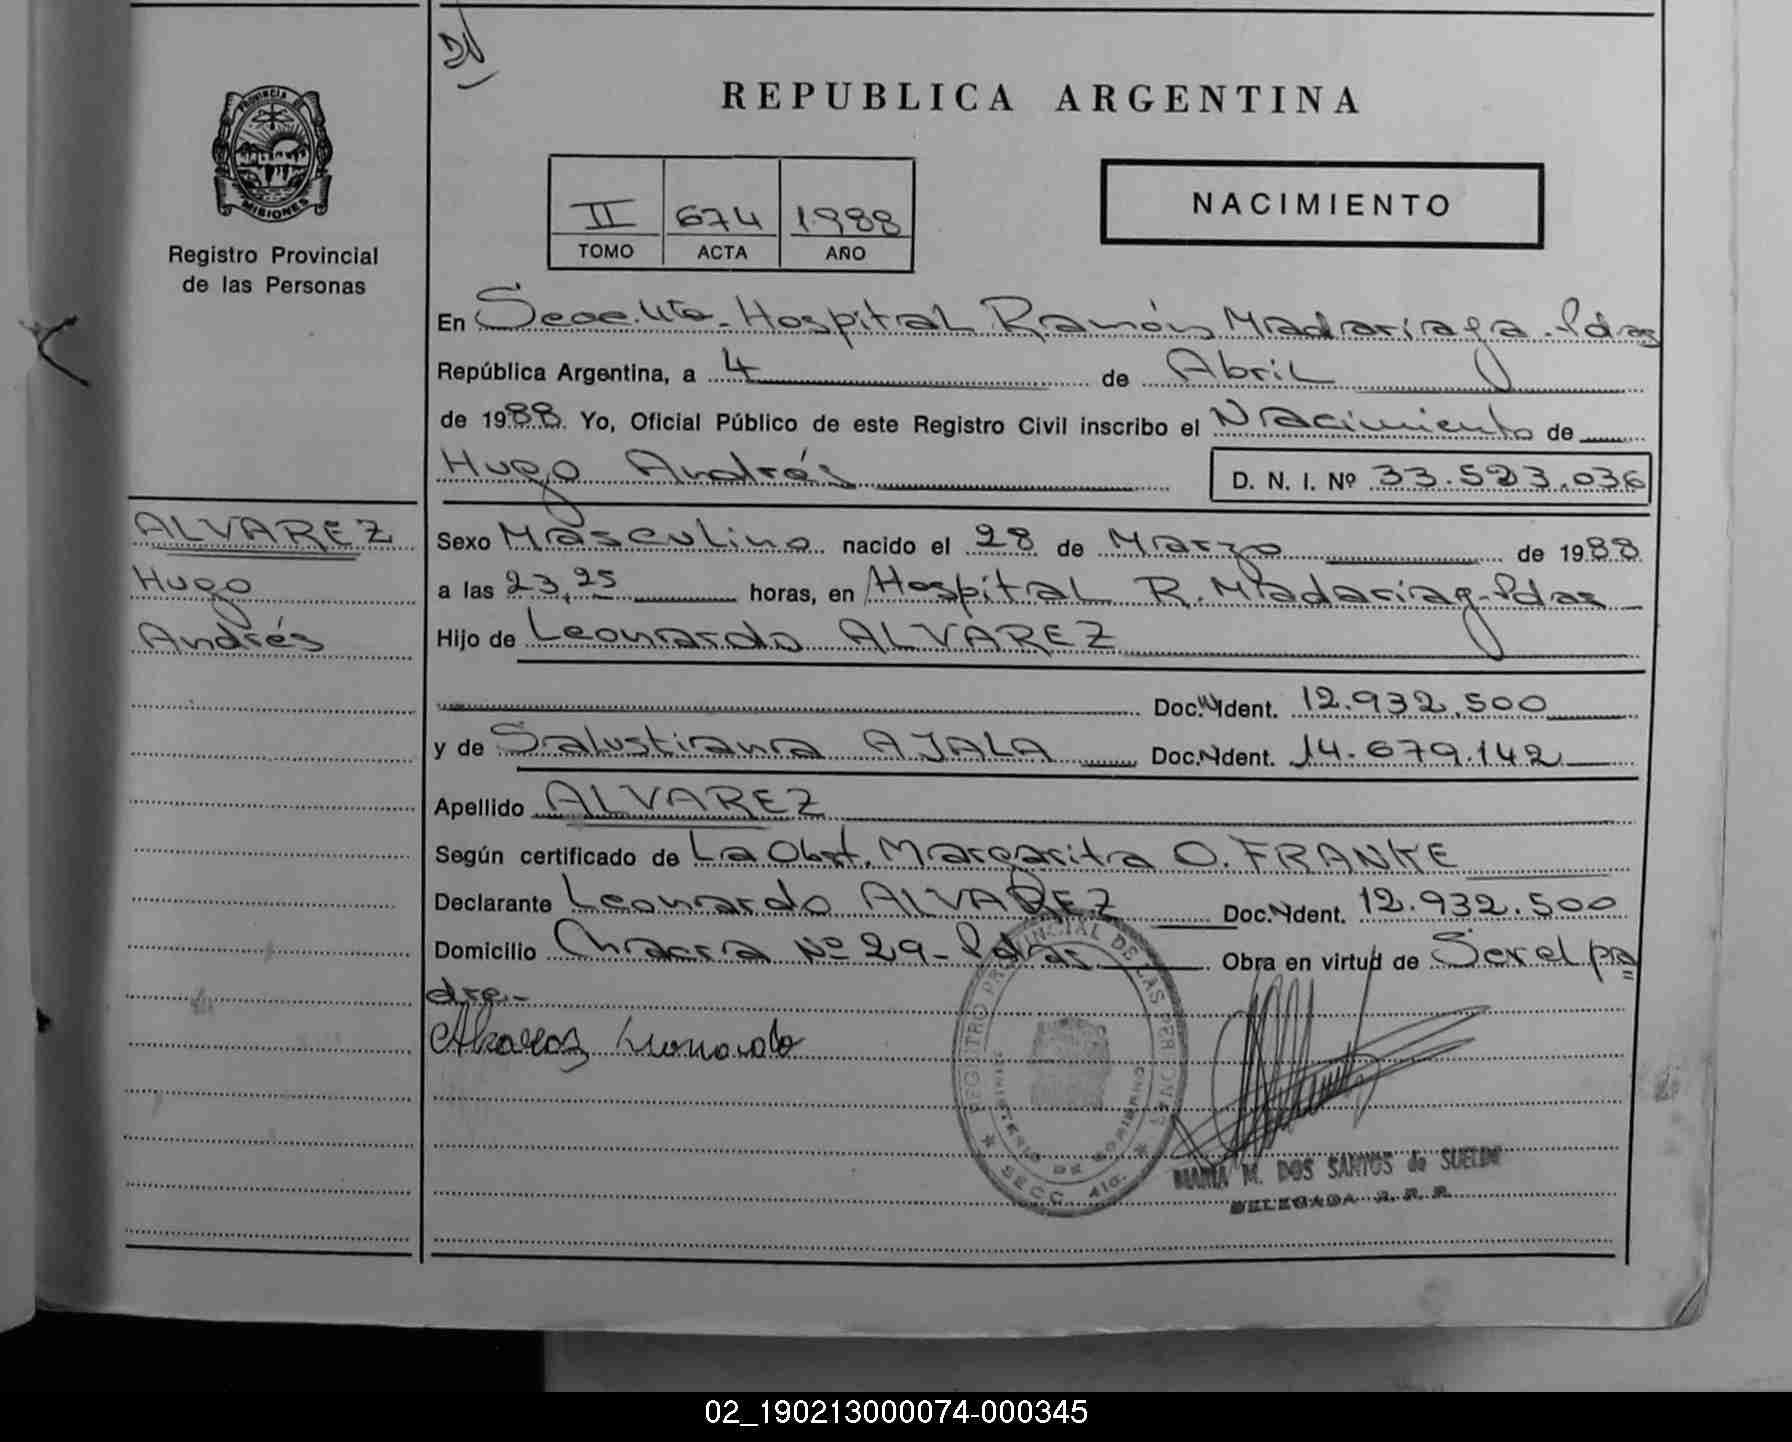 REPUBLICA ARGENTINA
PROVINCIA DE
MISIONES
Registro Provincial
de las Personas
II 674 1988
TOMO ACTA AÑO
NACIMIENTO
En Secc. 4ta. Hospital Ramón Madariaga - Pdas
República Argentina, a 4 de Abril
de 1988. Yo, Oficial Público de este Registro Civil inscribo el Nacimiento de
Hugo Andrés
D. N. I. Nº 33.523.036
ALVAREZ
Hugo
Andrés
Sexo Masculino nacido el 28 de Marzo de 1988
a las 23,25 horas, en Hospital R. Madariaga - Pdas
Hijo de Leonardo ALVAREZ
Doc. Ident. 12.932.500
y de Salustiana AJALA Doc. Ident. 14.679.142
Apellido ALVAREZ
Según certificado de La Obst. Margarita O. FRANKE
Declarante Leonardo ALVAREZ Doc. Ident. 12.932.500
Domicilio Chacra Nº 29 - Pdas Obra en virtud de Ser el pa=
dre.-
Alvarez Leonardo
REGISTRO PROVINCIAL DE LAS PERSONAS
MINISTERIO DE GOBIERNO
SECC. 4ta.
MARIA M. DOS SANTOS de SUELDO
DELEGADA R. P. P.
02_190213000074-000345